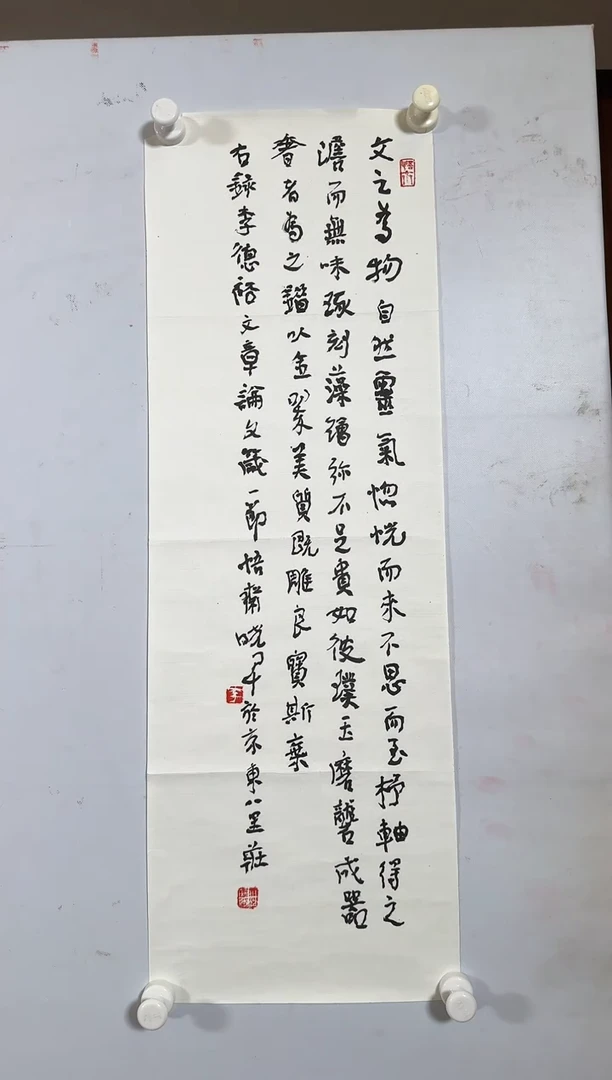 文之為物自然靈氣惚恍而来不思而至杼軸得之
澹而無味琢刻藻繪弥不足貴如彼璞玉磨礱成器
奢者為之錯以金翠美質既雕良寶斯棄
右録李德裕文章論文箴一節悟齋曉於京東八里莊
李